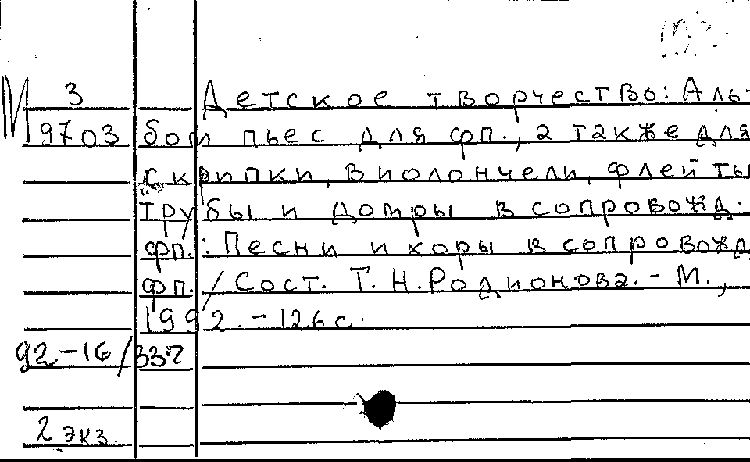 М 3 Детское творчество: Аль-
19703 бом пьес для фп., а также для
скрипки, виолончели, флейты
трубы и домры в сопровожд.
фп.: Песни и хоры в сопровожд
фп. / Сост. Т. Н. Родионова. - М.,
1992. - 126 с.
92-16/337
2 экз